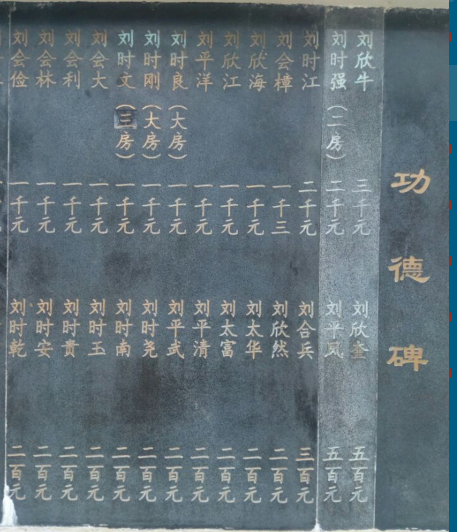 功德碑
刘欣牛 三千元
刘时强（二房） 二千元
刘时江 二千元
刘会樟 一千三
刘欣海 一千元
刘欣江 一千元
刘平洋 一千元
刘时良（大房） 一千元
刘时刚（大房） 一千元
刘时文（三房） 一千元
刘会大 一千元
刘会利 一千元
刘会林 一千元
刘会俭 一千元
刘欣奎 五百元
刘平凤 五百元
刘合兵 三百元
刘欣然 二百元
刘太华 二百元
刘太富 二百元
刘平清 二百元
刘平武 二百元
刘时尧 二百元
刘时南 二百元
刘时玉 二百元
刘时贵 二百元
刘时安 二百元
刘时乾 二百元